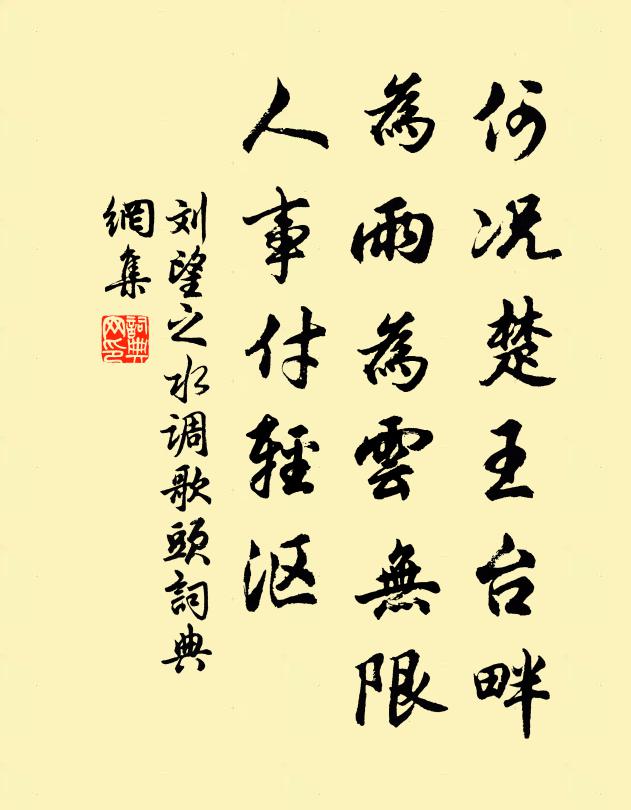 何况楚王台畔
為雨為雲無限
人事付輕沤
刘望之水调歌頭詞典
網集
詞典
网印